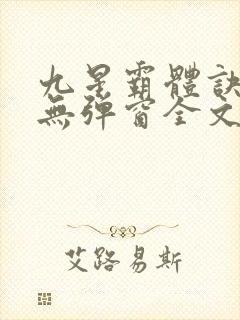 九星霸體訣
無彈窗全文
艾路易斯